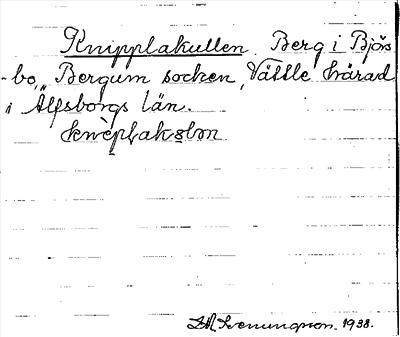 Knipplakullen Berg i Björs
-bo, Bergum socken, Vättle härad
i Älfsborgs län.
1938.